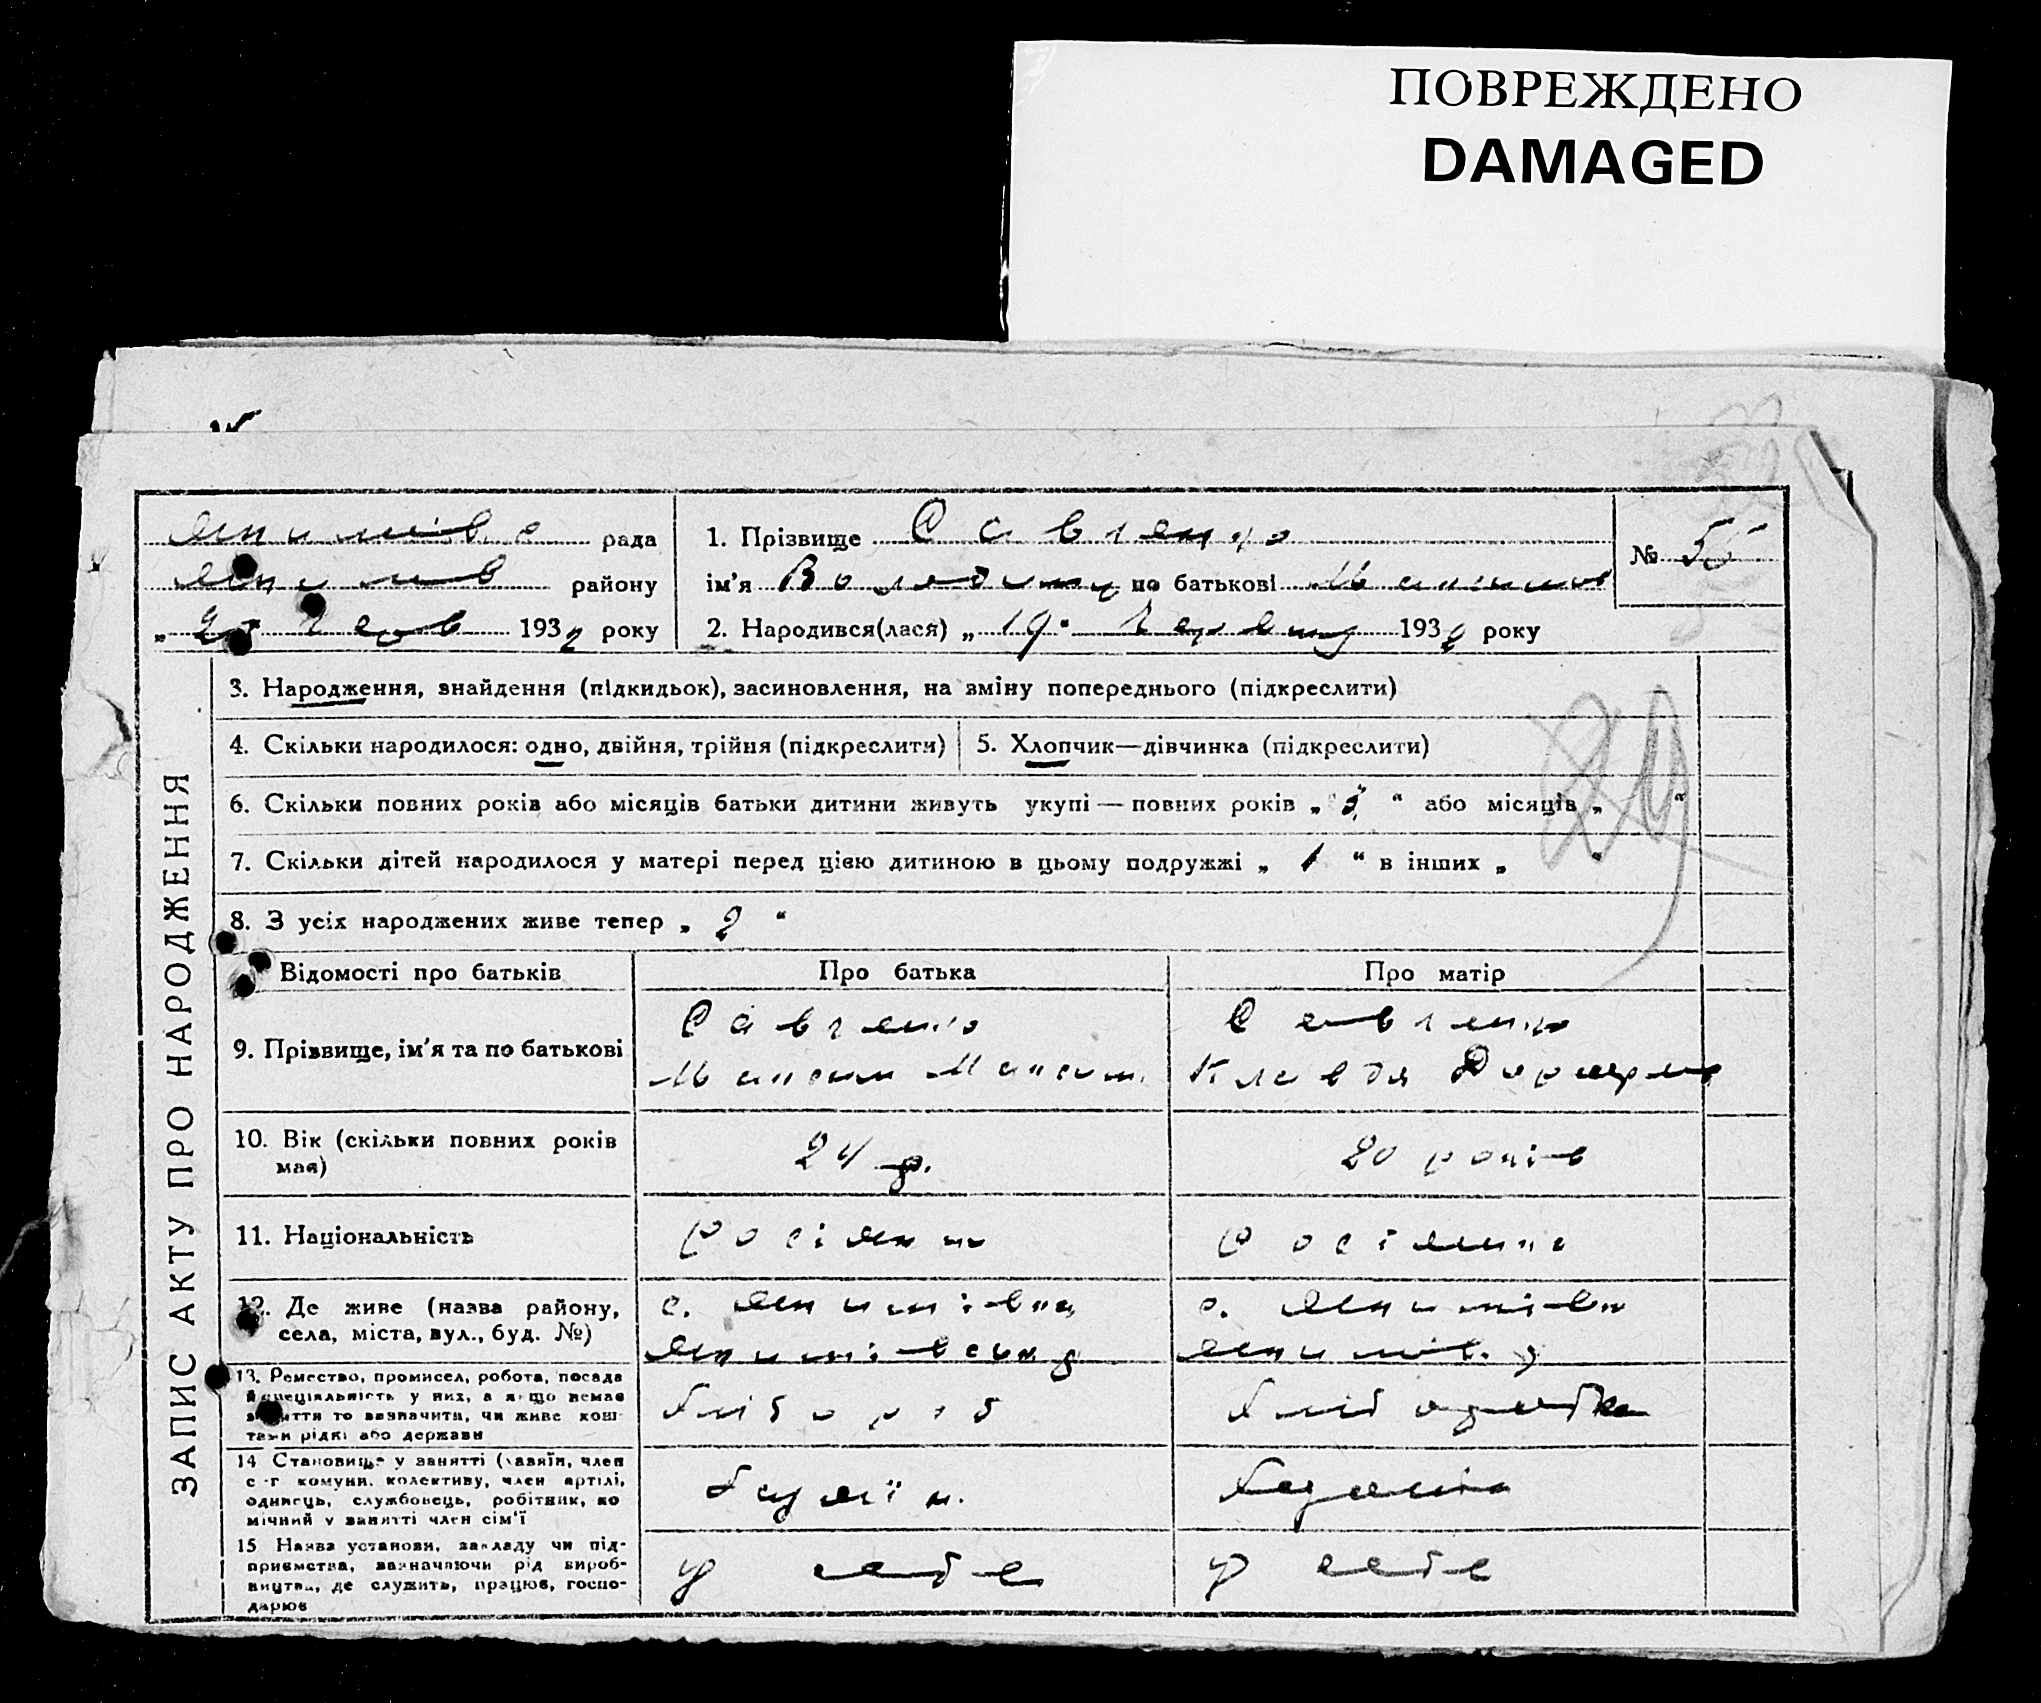 ПОВРЕЖДЕНО
DAMAGED
рада
району
„ 20 Черв 1932 року
1. Прізвище Савченко
ім'я Володимир по батькові Максимов
№ 55
2. Народився(лася) „ 19 " Червня 1932 року
ЗАПИС АКТУ ПРО НАРОДЖЕННЯ
3. Народження, знайдення (підкидьок), засиновлення, на зміну попереднього (підкреслити)
4. Скільки народилося: одно, двійня, трійня (підкреслити)
5. Хлопчик—дівчинка (підкреслити)
6. Скільки повних років або місяців батьки дитини живуть укупі — повних років „ 3 “ або місяців „ “
7. Скільки дітей народилося у матері перед цією дитиною в цьому подружжі „ 1 “ в інших „ “
8. З усіх народжених живе тепер „ 2 “
29
Відомості про батьків
Про батька
Про матір
9. Прізвище, ім'я та по батькові
Савченко
Максим Максим.
Савченко
Клавдя
10. Вік (скільки повних років має)
24 р.
20 років
11. Національність
росіянин
росіянка
12. Де живе (назва району, села, міста, вул., буд. №)
с.
с.
13. Ремество, промисел, робота, посада й спеціяльність у них, а якщо немає заняття то зазначити, чи живе коштами рідні або держави
хлібороб
хліборобка
14 Становище у занятті (хазяїн, член с-г комуни, колективу, член артілі, одинець, службовець, робітник, помічний у занятті член сім'ї
хазяїн.
хазяйка
15 Назва установи, закладу чи підприємства, зазначаючи рід виробництва, де служить, працює, господарює
у себе
у себе